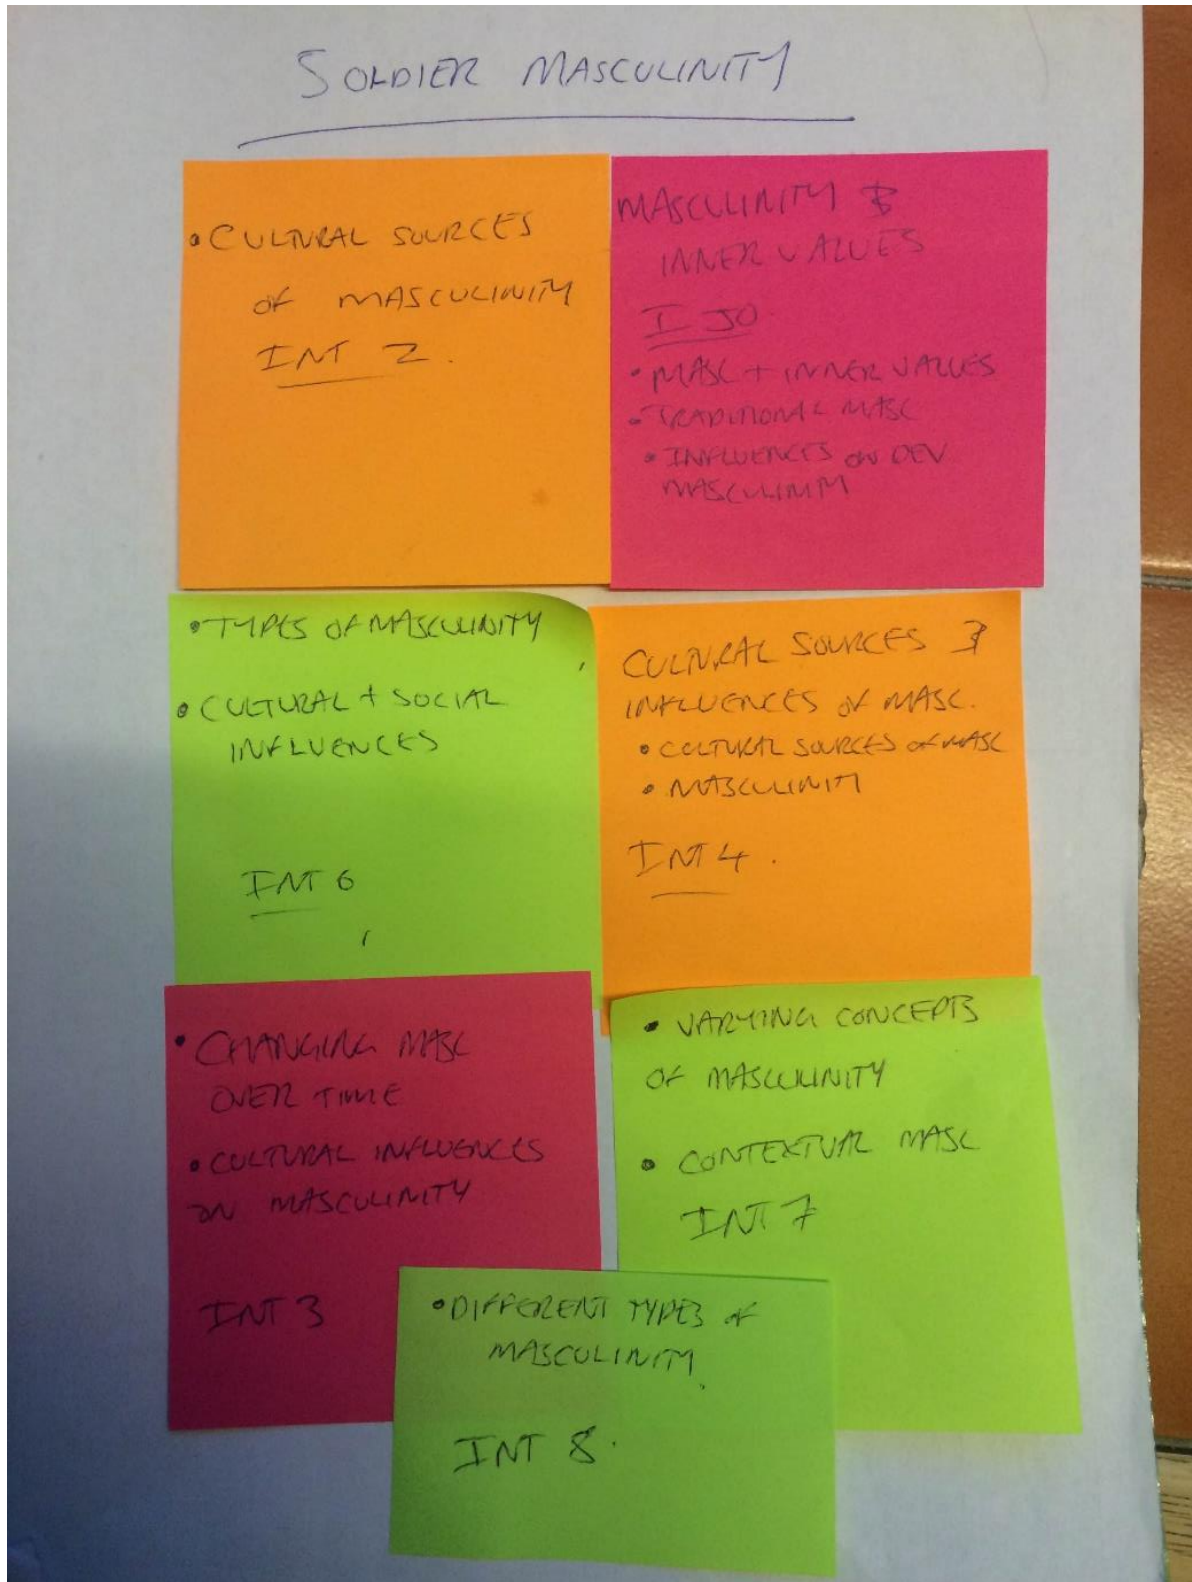 SOLDIER MASCULINITY
• CULTURAL SOURCES
OF MASCULINITY
INT 2.
MASCULINITY &
INNER VALUES
I JO
• MASC + INNER VALUES
• TRADITIONAL MASC
• INFLUENCES ON DEV
MASCULINITY
• TYPES OF MASCULINITY
• CULTURAL + SOCIAL
INFLUENCES
INT 6
CULTURAL SOURCES &
INFLUENCES OF MASC.
• CULTURAL SOURCES OF MASC
• MASCULINITY
INT 4.
• CHANGING MASC
OVER TIME
• CULTURAL INFLUENCES
ON MASCULINITY
INT 3
• VARYING CONCEPTS
OF MASCULINITY
• CONTEXTUAL MASC
INT 7
• DIFFERENT TYPES OF
MASCULINITY
INT 8.